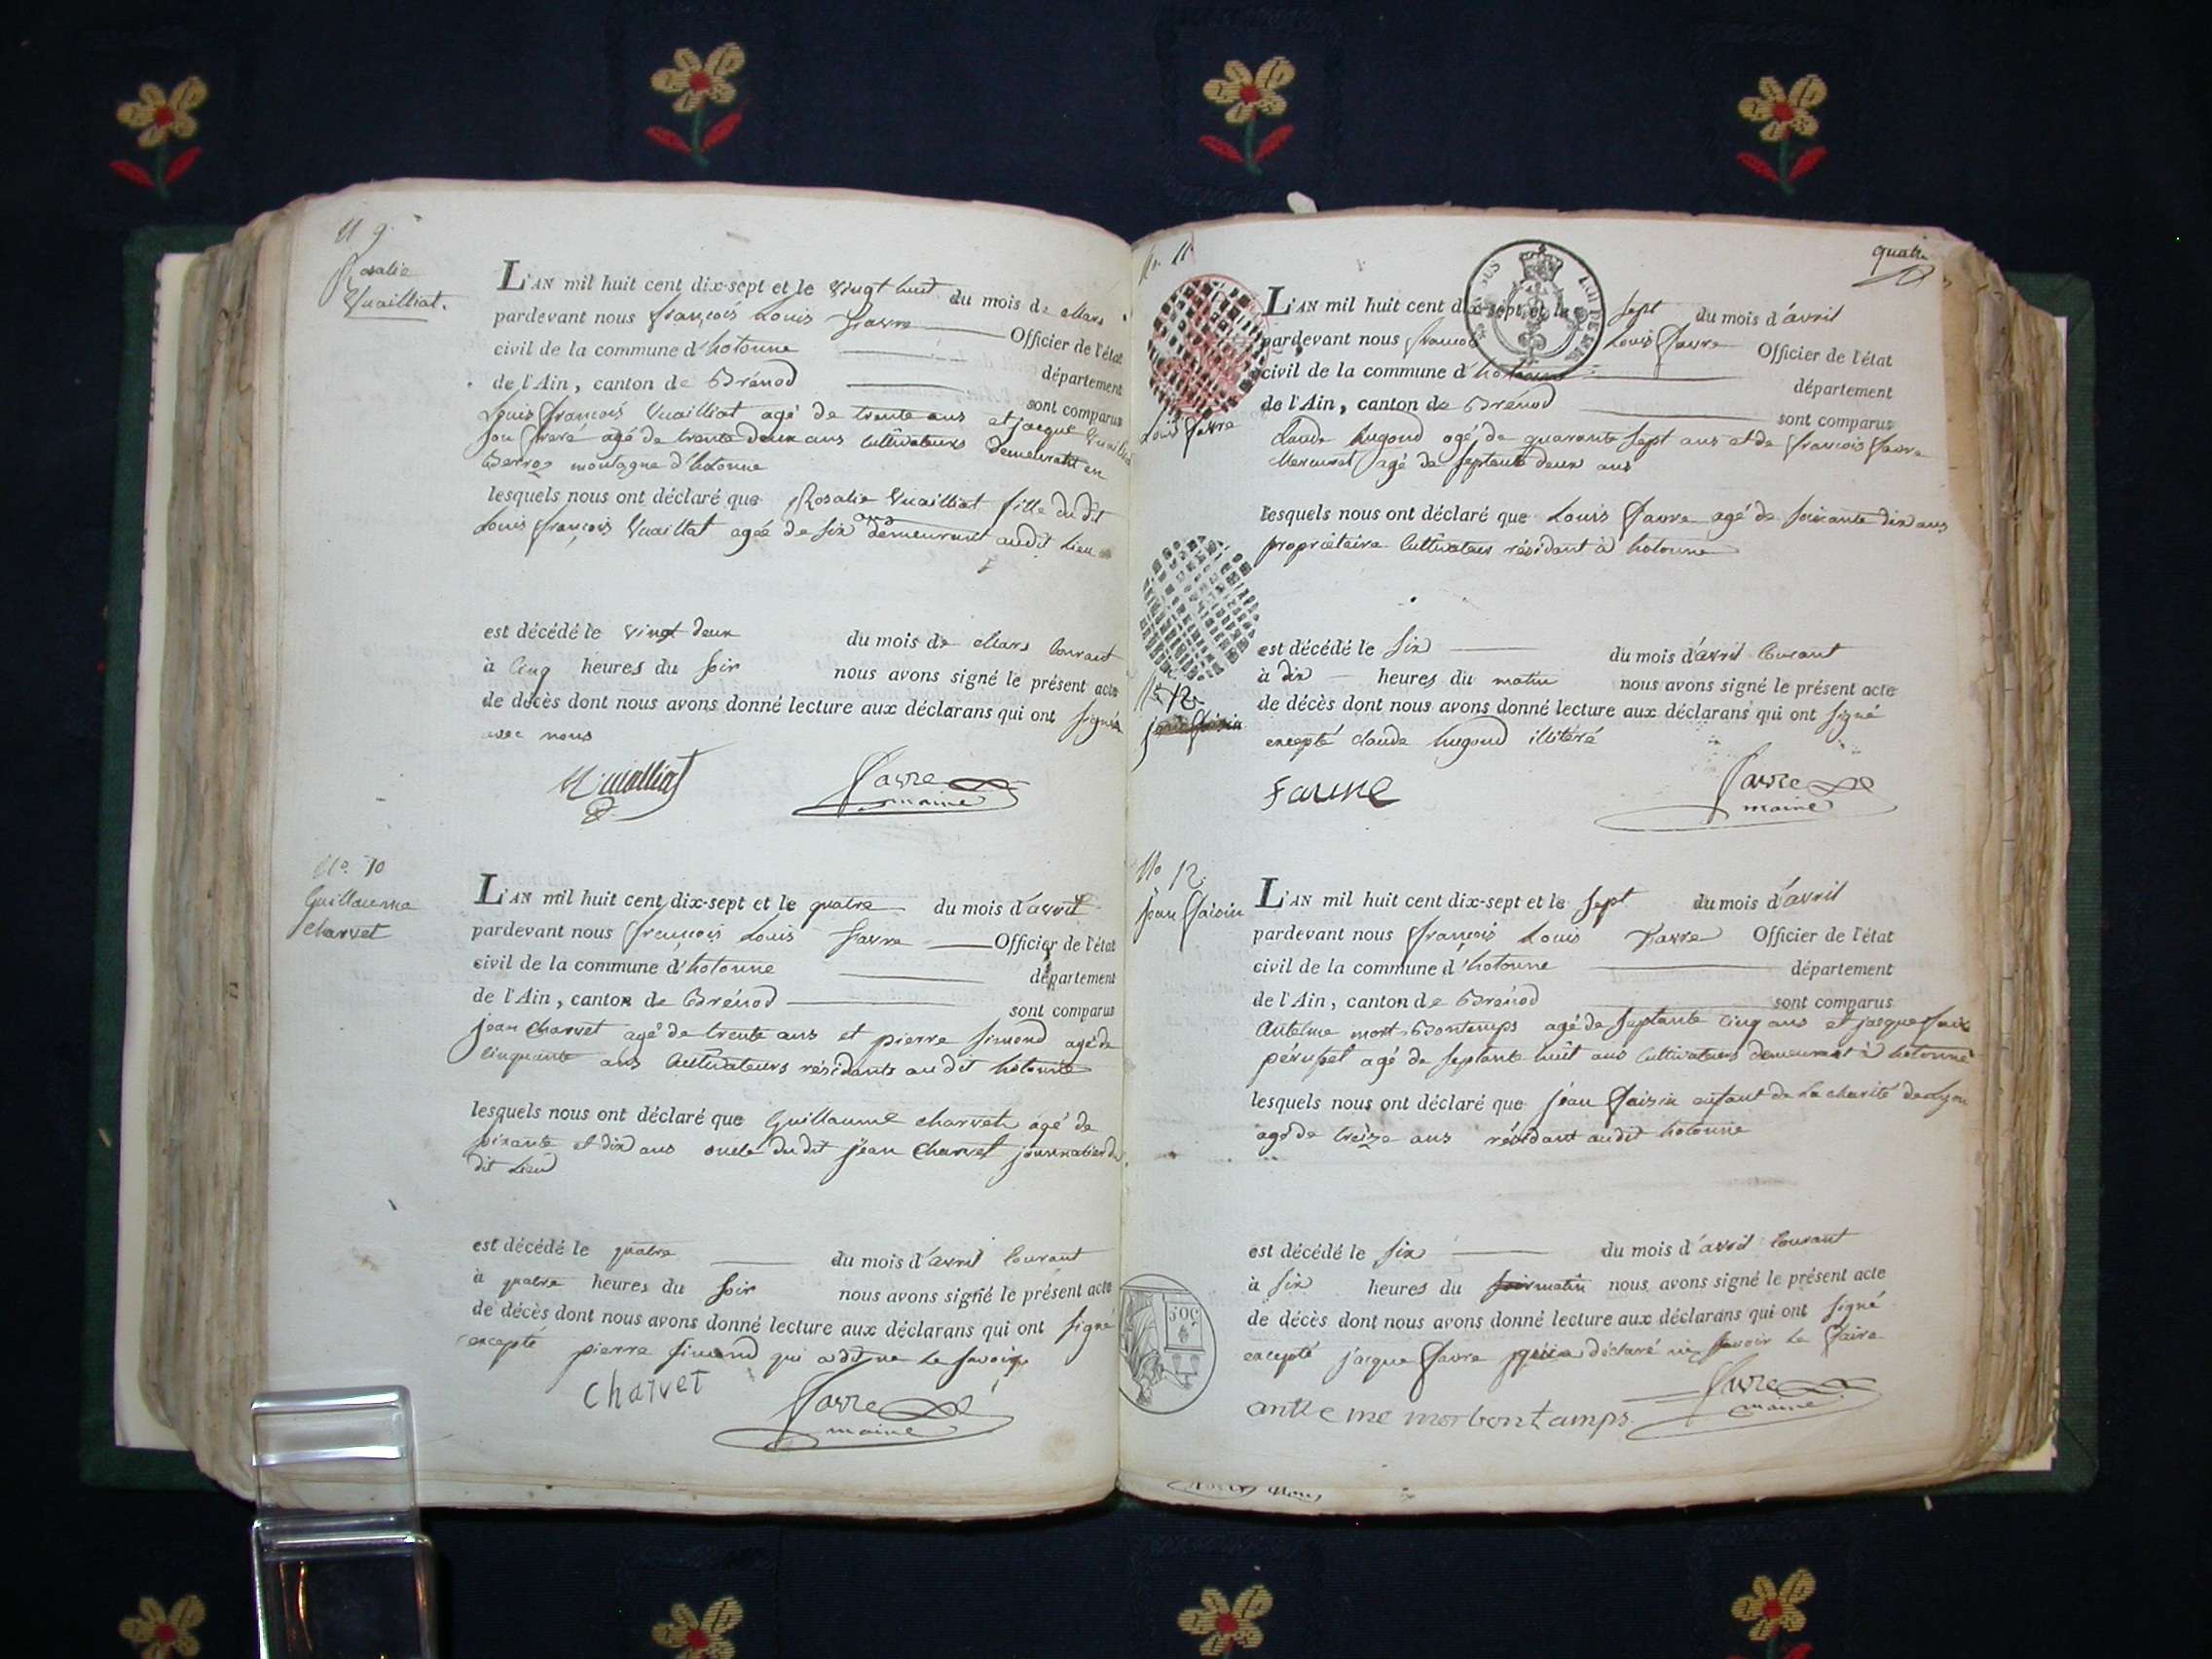 N 9.
Rosalie
Vuailliat.
L'AN mil huit cent dix-sept et le vingt huit du mois de Mars
pardevant nous françois Louis favre Officier de l'état
civil de la commune d'hotonne
département
de l'Ain, canton de Brénod
sont comparus
Louis françois Vuailliat agé de trente ans et jacque Vuailliat
son frere agé de trente deux ans Cultivateurs demeurants en
montagne d'hotonne
lesquels nous ont déclaré que Rosalie Vuailliat fille du dit
Louis françois Vuaillat agée de six ans demeurant audit Lieu
est décédé le vingt deux du mois de Mars Courant
à Cinq heures du soir nous avons signé le présent acte
de décès dont nous avons donné lecture aux déclarans qui ont signés
avec nous
Vuailliat
favre
maire
No. 10
Guillaume
Charvet
L'AN mil huit cent dix-sept et le quatre du mois d'avril
pardevant nous françois Louis favre Officier de l'état
civil de la commune d'hotonne
département
de l'Ain, canton de Brénod
sont comparus
jean Charvet agé de trente ans et pierre Simond agé de
Cinquante ans Cultivateurs résidants audit hotonne
lesquels nous ont déclaré que Guillaume Charvet agé de
soixante et dix ans oncle dudit jean Charvet journalier du
dit Lieu
est décédé le quatre du mois d'avril Courant
à quatre heures du soir nous avons signé le présent acte
de décès dont nous avons donné lecture aux déclarans qui ont signé
excepté pierre Simond qui a dit ne le savoir
Charvet
favre
maire
quatre
No. 11
Louis favre
L'AN mil huit cent dix-sept et le sept du mois d'avril
pardevant nous françois Louis favre Officier de l'état
civil de la commune d'hotonne
département
de l'Ain, canton de Brénod
sont comparus
Claude hugond agé de quarante sept ans et de françois favre
Mercuret agé de septante deux ans
lesquels nous ont déclaré que Louis favre agé de soixante dix ans
propriétaire Cultivateur résidant à hotonne
est décédé le six du mois d'avril Courant
à dix heures du matin nous avons signé le présent acte
de décès dont nous avons donné lecture aux déclarans qui ont signé
excepté Claude hugond illitéré
favre
maire
No 12
No 12.
jean faisin
L'AN mil huit cent dix-sept et le sept du mois d'avril
pardevant nous françois Louis favre Officier de l'état
civil de la commune d'hotonne
département
de l'Ain, canton de Brénod
sont comparus
Antelme mort-Bontemps agé de septante Cinq ans et jacque favre
agé de septante huit ans Cultivateurs demeurant à hotonne
lesquels nous ont déclaré que jean faisin enfant de La charité de Lyon
agé de treize ans résidant audit hotonne
est décédé le six du mois d'avril Courant
à six heures du matin nous avons signé le présent acte
de décès dont nous avons donné lecture aux déclarans qui ont signé
excepté jacque favre qui a déclaré ne savoir le faire
anteme morbontamps
favre
maire